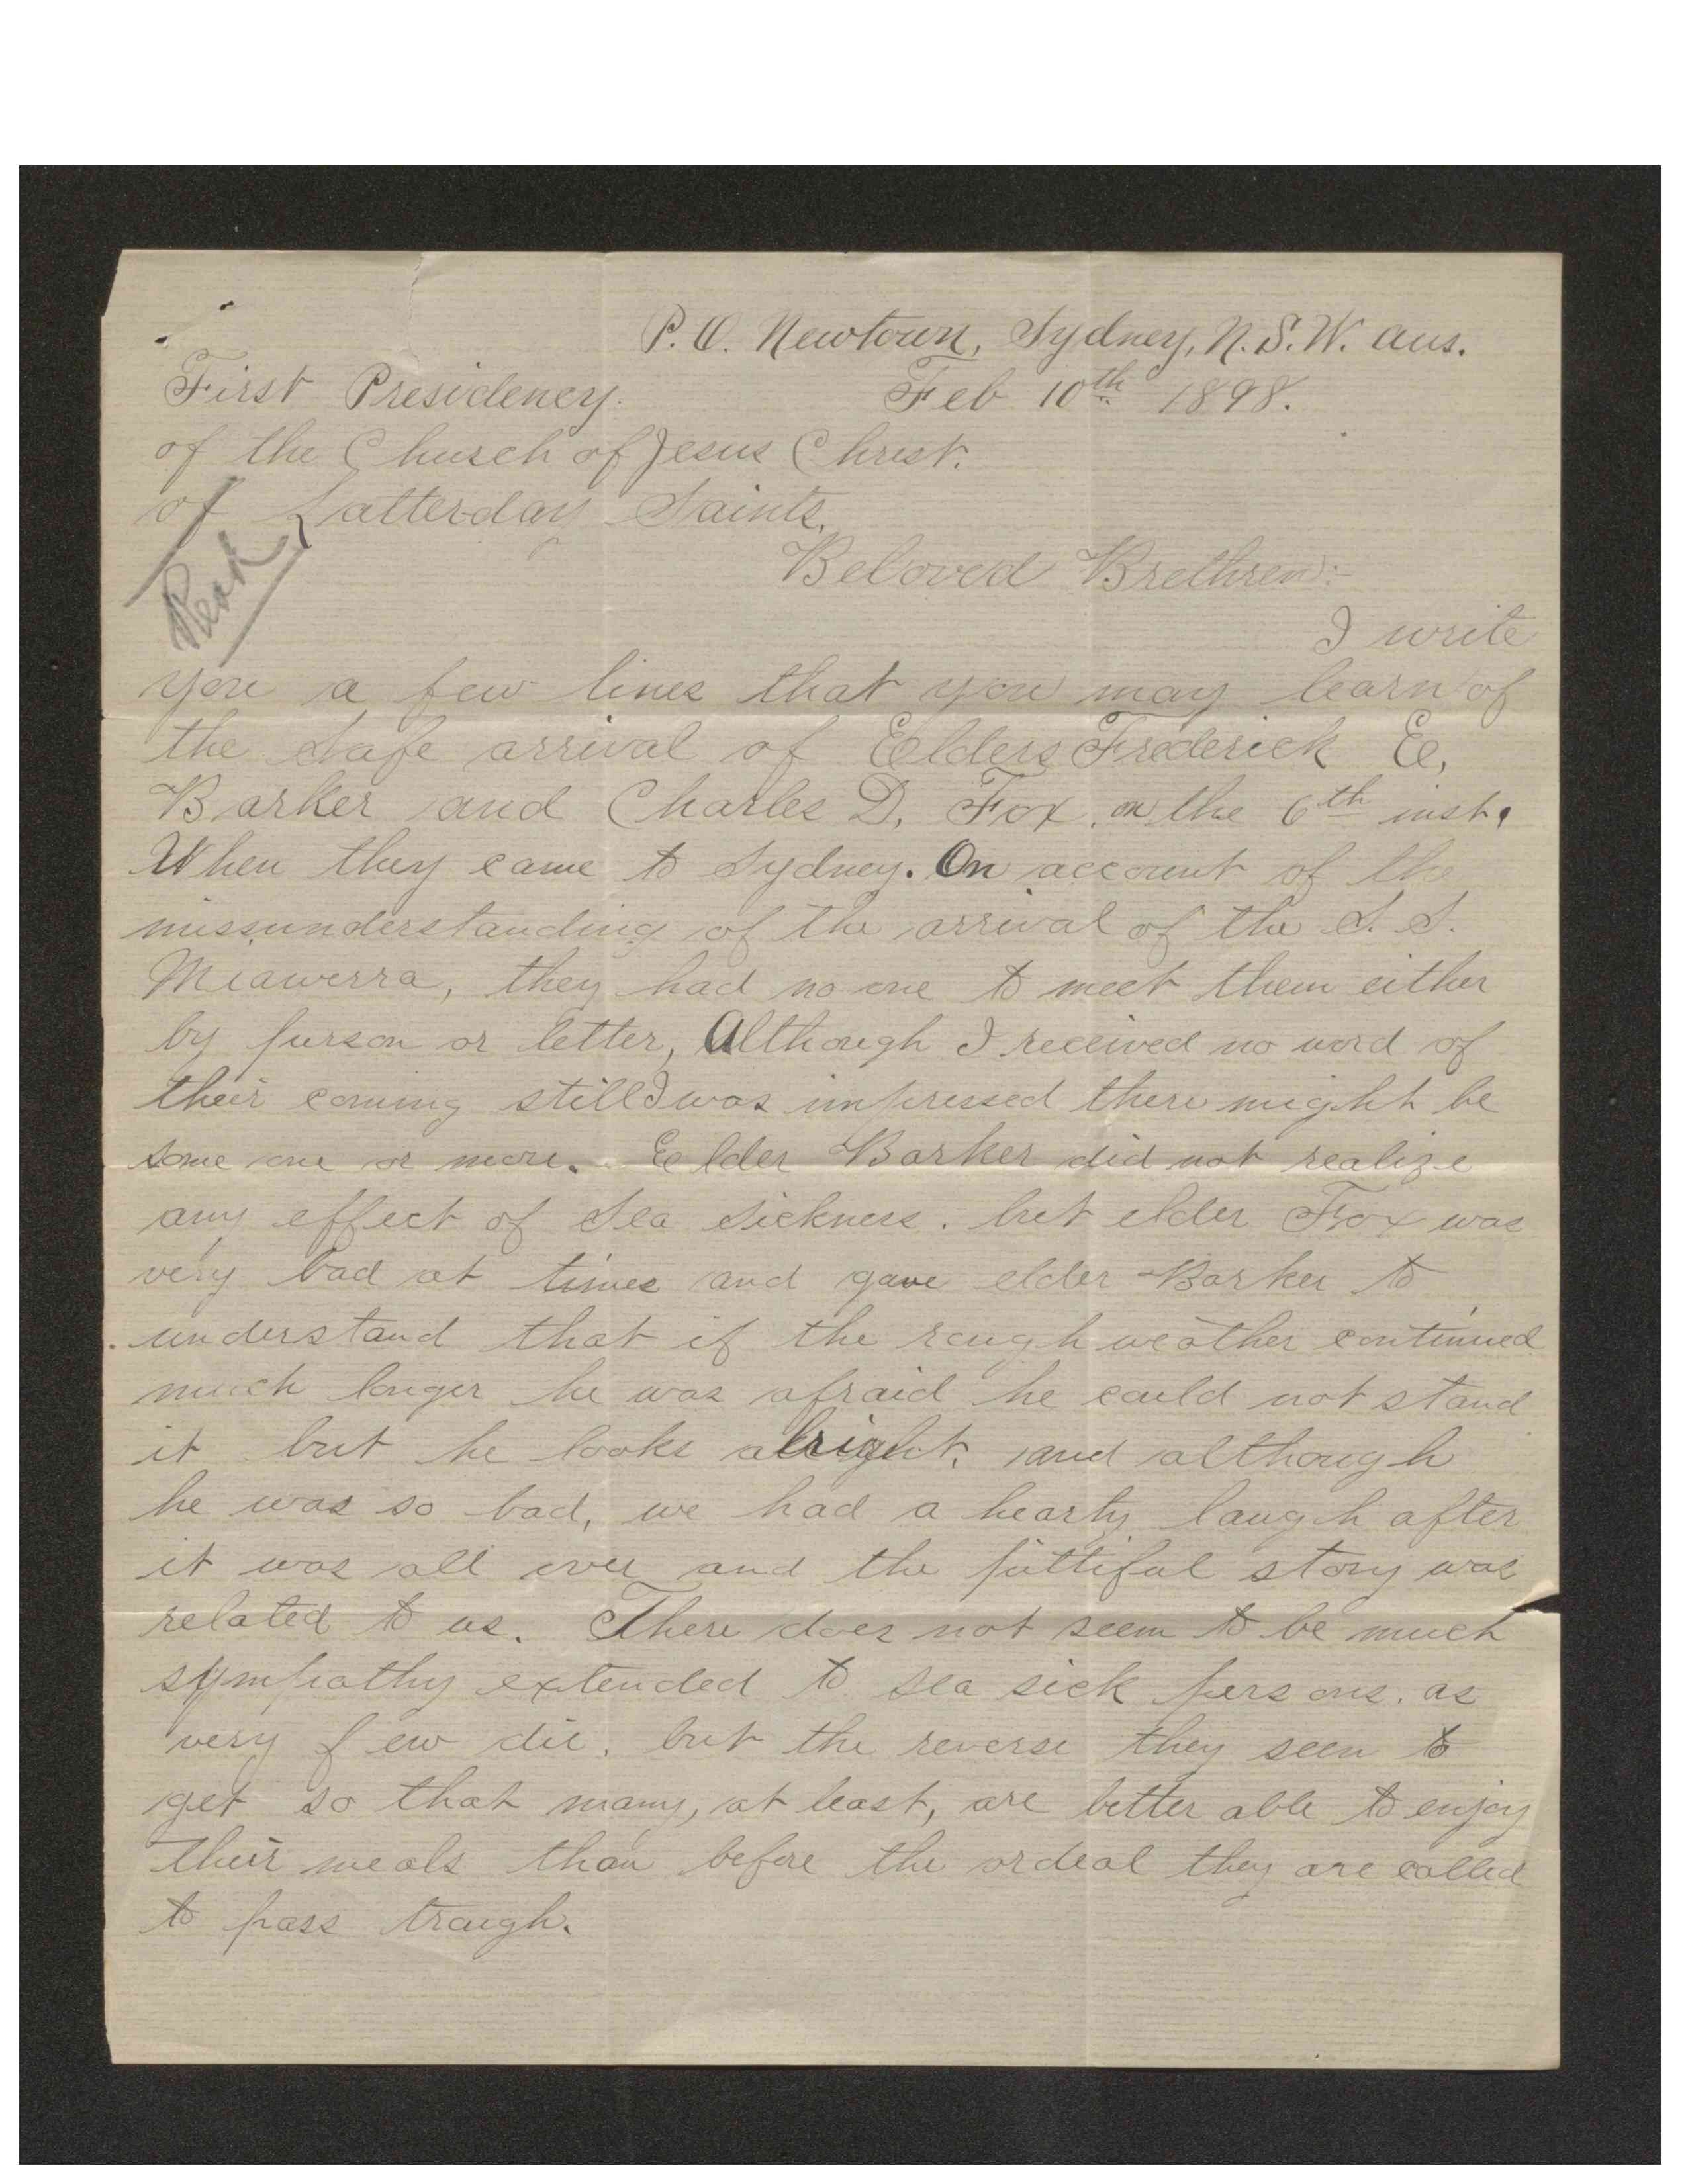 P.O. Newtown, Sydney, N.S.W. Aus.
First Presidency. Feb 10th 1898.
of the Church of Jesus Christ.
of Latterday Saints.
Read
Beloved Brethren:-
I write
you a few lines that you may learn of
the Safe arrival of Elders Frederick E,
Barker and Charles D, Fox, on the 6th inst.
When they came to Sydney. On account of the
missunderstanding of the arrival of the S. S.
Miawerra, they had no one to meet them either
by purson or letter, Although I received no word of
their coming still I was impressed there might be
some one or more. Elder Barker did not realize
any effect of Sea Sickness. but elder Fox was
very bad at times and gave elder Barker to
understand that if the rough weather continued
much longer he was afraid he could not stand
it but he looks alright, and although
he was so bad, we had a hearty laugh after
it was all over and the pittiful story was
related to us. There does not seem to be much
sympathy extended to sea sick persons. as
very few die. but the reverse they seen to
get so that many, at least, are better able to enjoy
their meals than before the ordeal they are called
to pass trough.